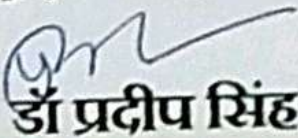 डॉ प्रदीप सिंह